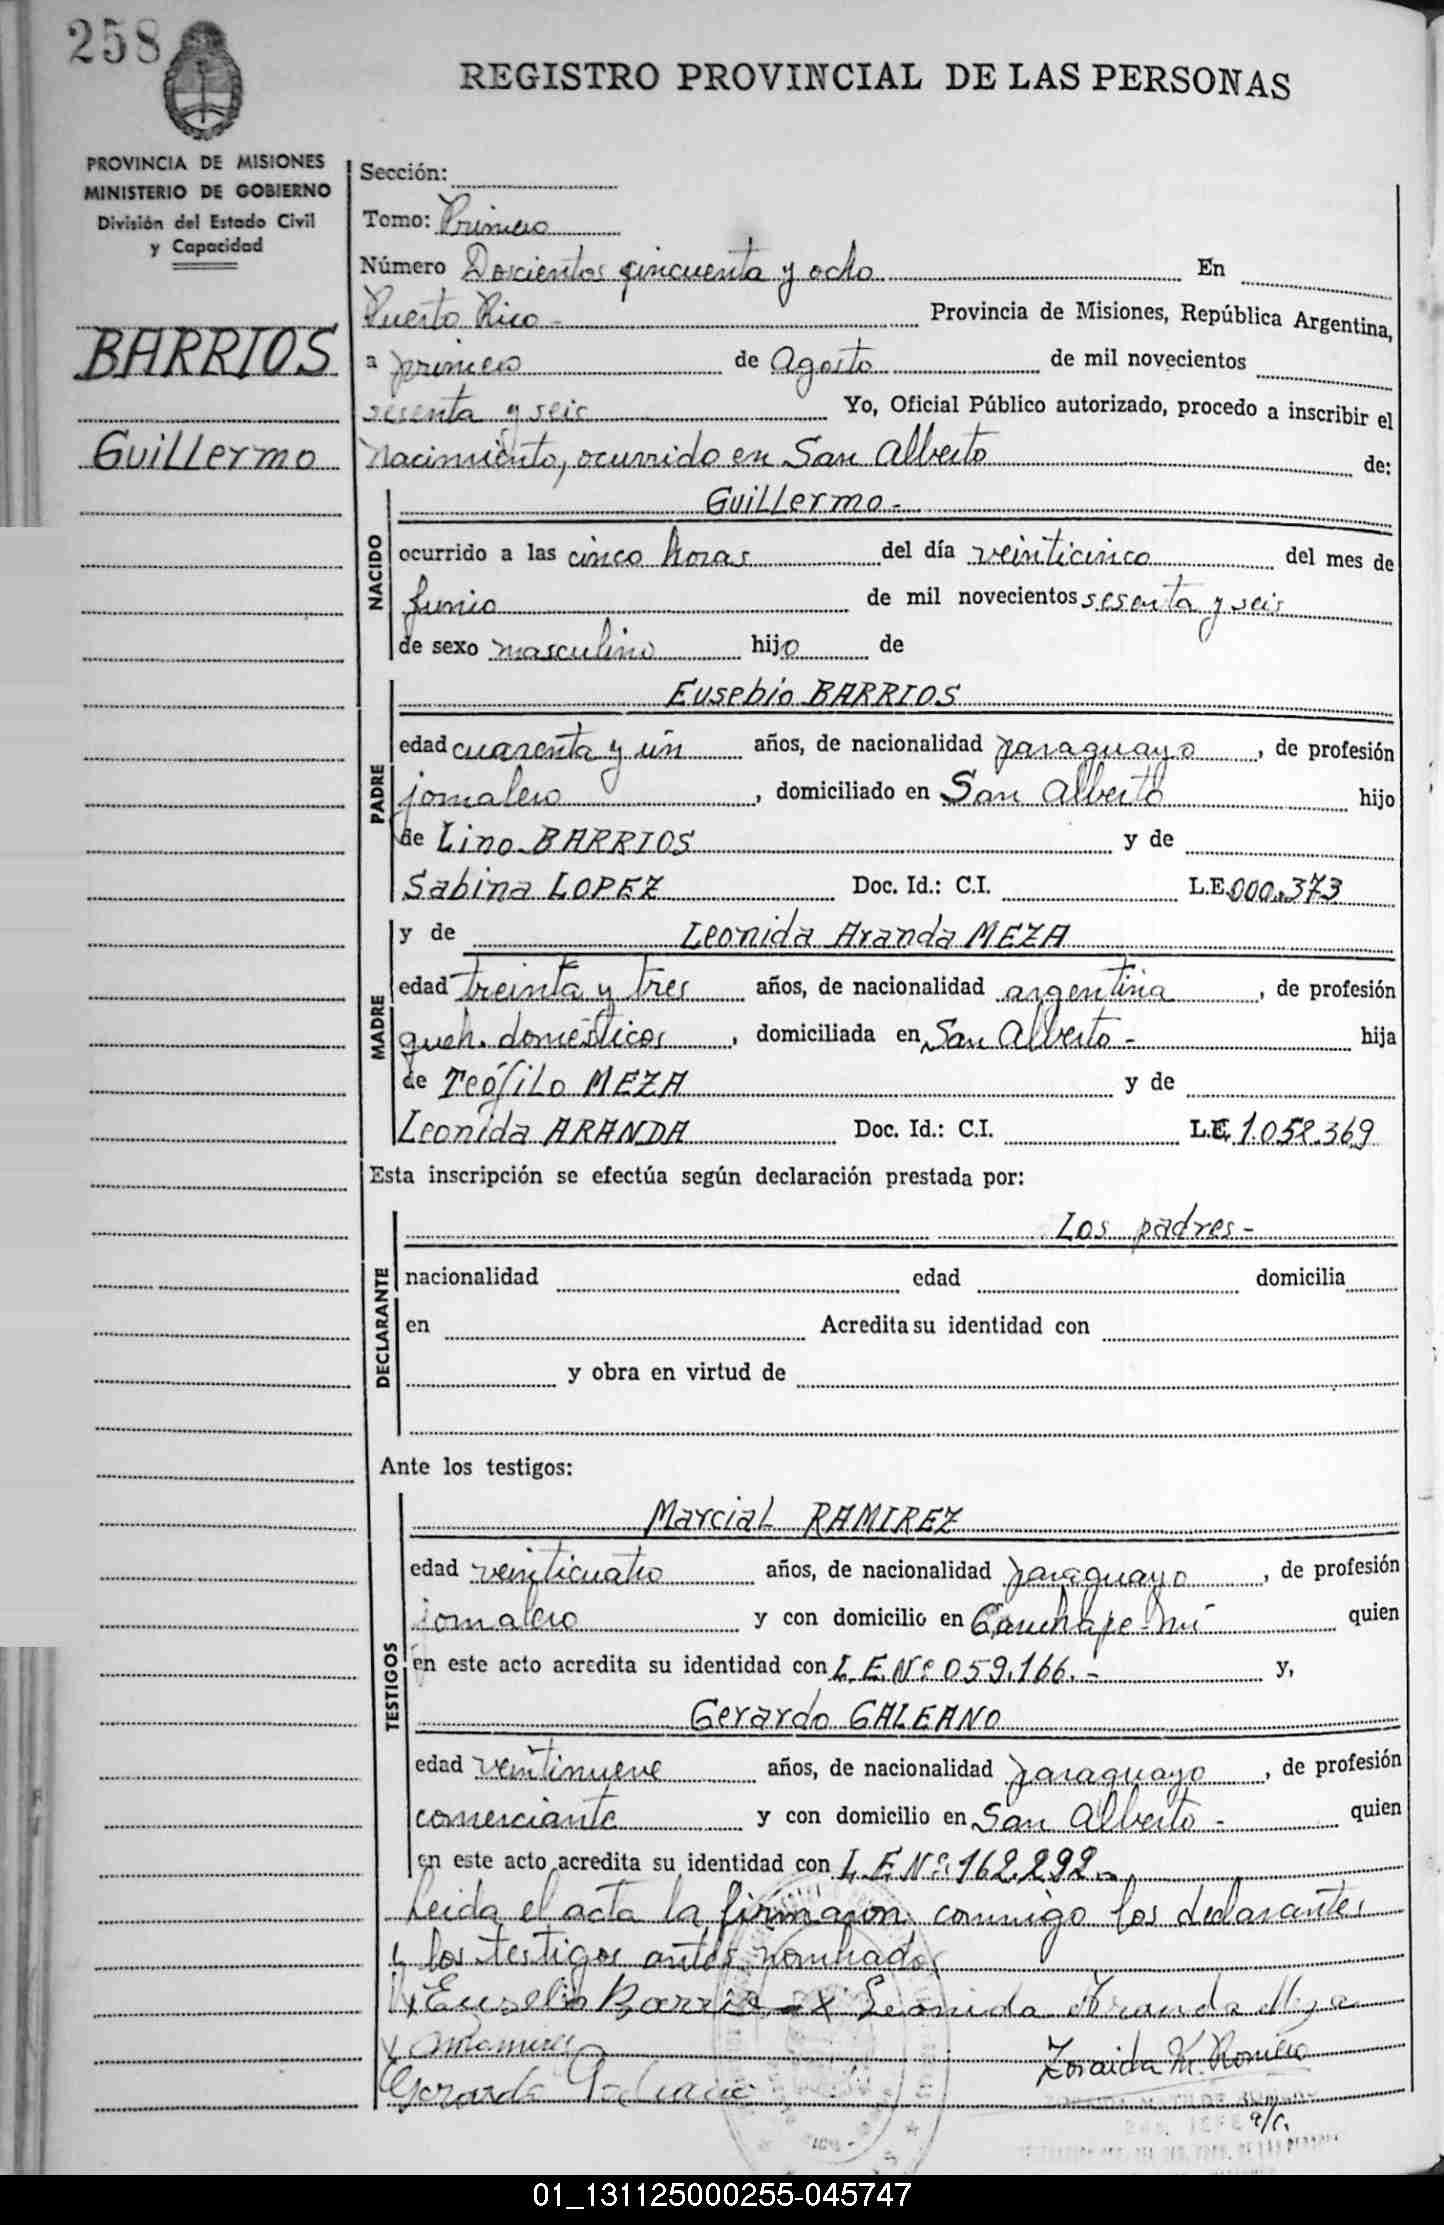 258
REGISTRO PROVINCIAL DE LAS PERSONAS
PROVINCIA DE MISIONES
MINISTERIO DE GOBIERNO
División del Estado Civil
y Capacidad
BARRIOS
Guillermo
Sección:
Tomo: Primero
Número Doscientos cincuenta y ocho En
Puerto Rico - Provincia de Misiones, República Argentina,
a primero de Agosto de mil novecientos
sesenta y seis Yo, Oficial Público autorizado, procedo a inscribir el
nacimiento, ocurrido en San Alberto de:
NACIDO
Guillermo -
ocurrido a las cinco horas del día veinticinco del mes de
Junio de mil novecientos sesenta y seis
de sexo masculino hijo de
PADRE
Eusebio BARRIOS
edad cuarenta y un años, de nacionalidad paraguayo, de profesión
jornalero, domiciliado en San Alberto hijo
de Lino BARRIOS y de
Sabina LOPEZ Doc. Id.: C.I. L.E. 000.373
MADRE
y de Leonida Aranda MEZA
edad treinta y tres años, de nacionalidad argentina, de profesión
queh. domésticos, domiciliada en San Alberto - hija
de Teófilo MEZA y de
Leonida ARANDA Doc. Id.: C.I. L.C. 1.058.369
Esta inscripción se efectúa según declaración prestada por:
DECLARANTE
Los padres -
nacionalidad edad domicilia
en Acredita su identidad con
y obra en virtud de
Ante los testigos:
TESTIGOS
Marcial RAMIREZ
edad veinticuatro años, de nacionalidad paraguayo, de profesión
jornalero y con domicilio en quien
en este acto acredita su identidad con L.E.Nº 059.166.- y,
Gerardo GALEANO
edad veintinueve años, de nacionalidad paraguayo, de profesión
comerciante y con domicilio en San Alberto - quien
en este acto acredita su identidad con L.E.Nº 162.292 -
Leida el acta la firmaron conmigo los declarantes
y los testigos antes nombrados
x Eusebio Barrios x Leonida Aranda Meza
Gerardo Galeano
Zoraida M. Romero
a/c.
01_131125000255-045747